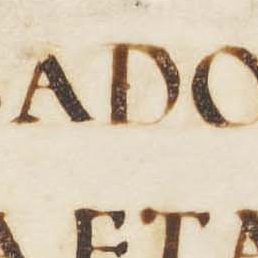 ADO
ETA